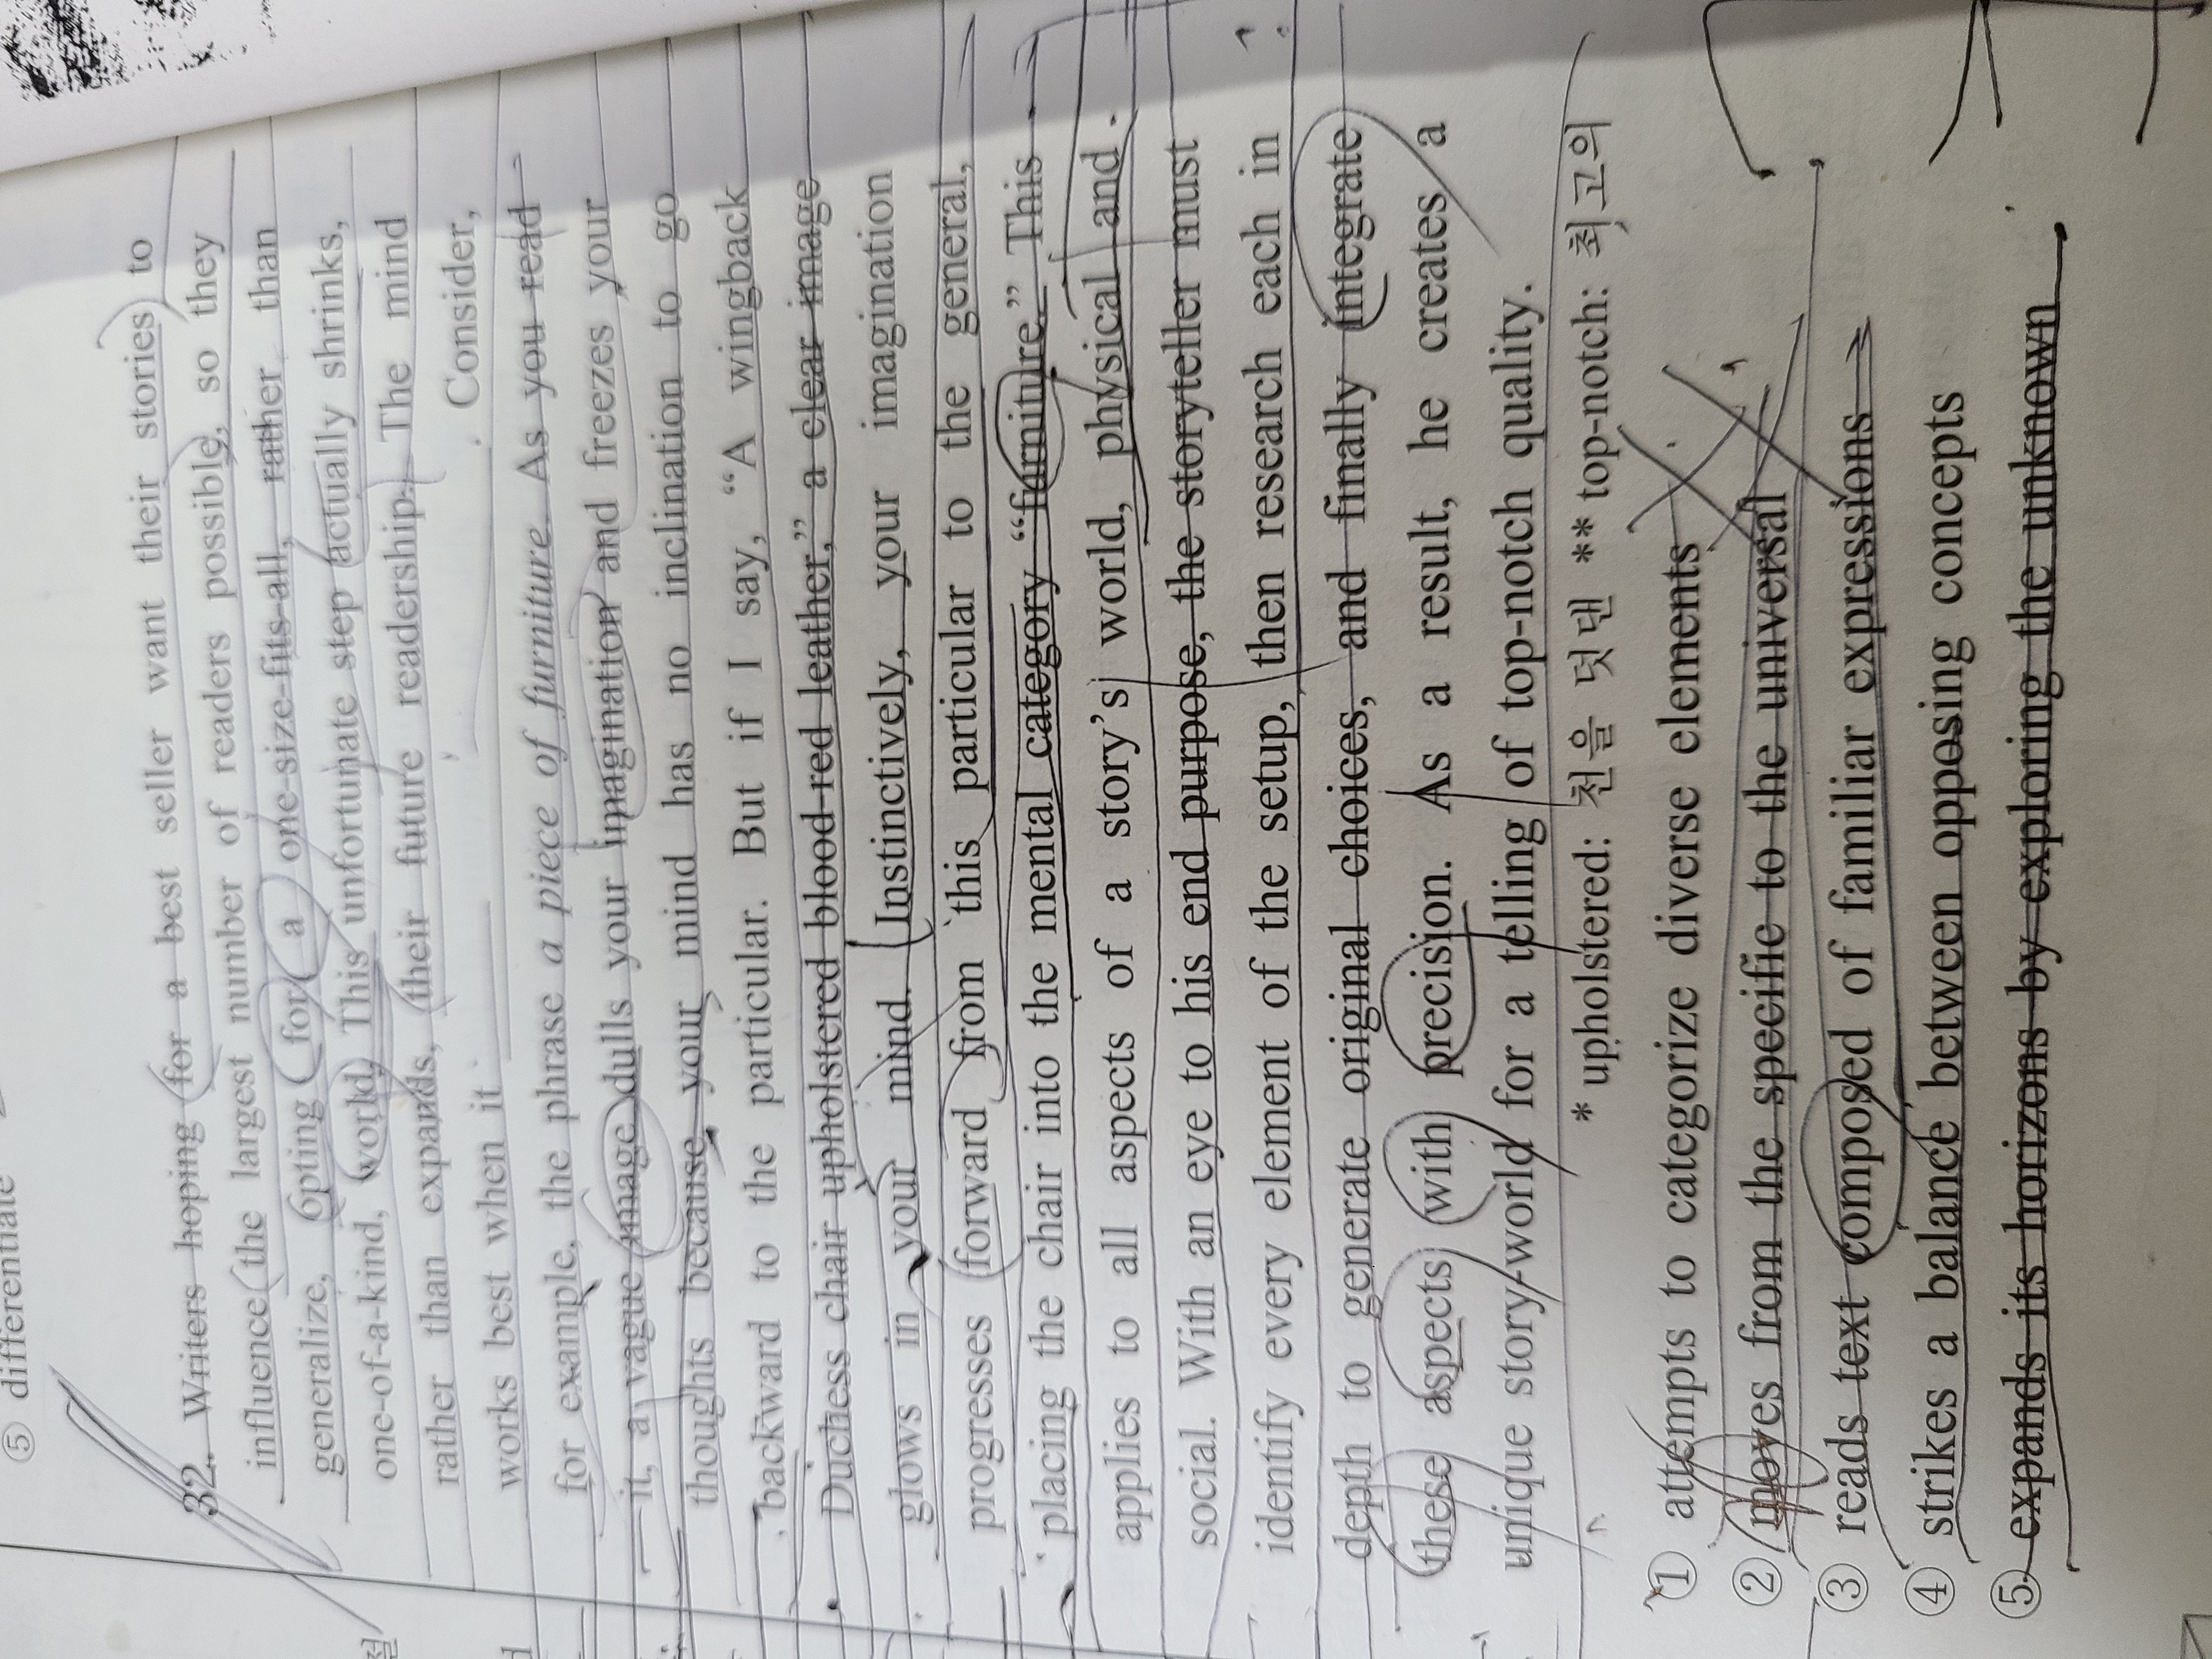 ⑤ differentiate
32. Writers hoping for a best seller want their stories to
influence the largest number of readers possible, so they
generalize, opting for a one-size-fits-all, rather than
one-of-a-kind, world. This unfortunate step actually shrinks,
rather than expands, their future readership. The mind
works best when it . Consider,
for example, the phrase a piece of furniture. As you read
it, a vague image dulls your imagination and freezes your
thoughts because your mind has no inclination to go
backward to the particular. But if I say, “A wingback
Duchess chair upholstered blood-red leather,” a clear image
glows in your mind. Instinctively, your imagination
progresses forward from this particular to the general,
placing the chair into the mental category “furniture.” This
applies to all aspects of a story’s world, physical and
social. With an eye to his end purpose, the storyteller must
identify every element of the setup, then research each in
depth to generate original choices, and finally integrate
these aspects with precision. As a result, he creates a
unique story-world for a telling of top-notch quality.
* upholstered: 천을 덧댄 ** top-notch: 최고의
① attempts to categorize diverse elements
② moves from the specific to the universal
③ reads text composed of familiar expressions
④ strikes a balance between opposing concepts
⑤ expands its horizons by exploring the unknown